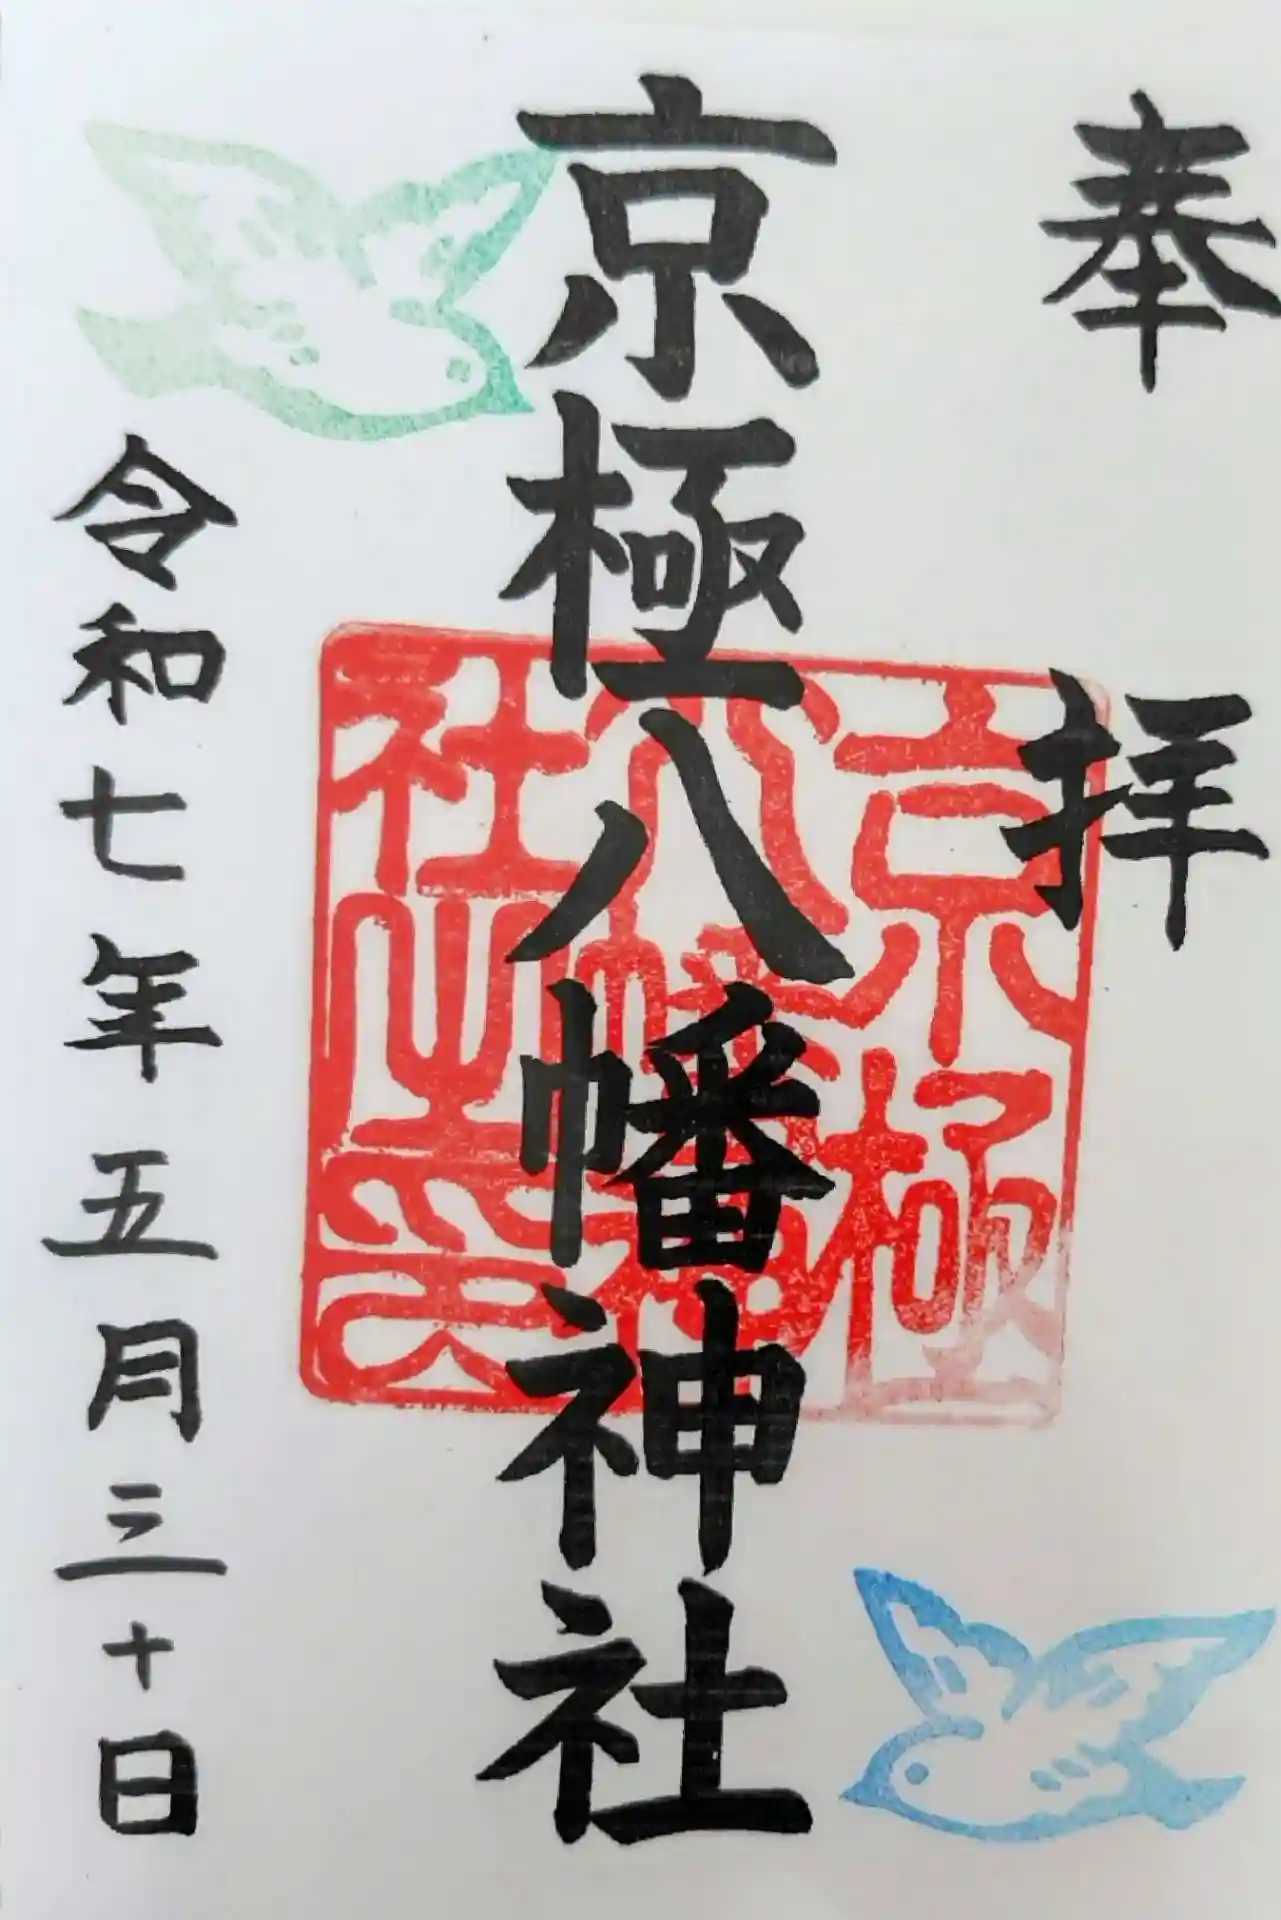 奉拝
京極八幡神社
京極
八幡神
社之印
令和七年五月三十日